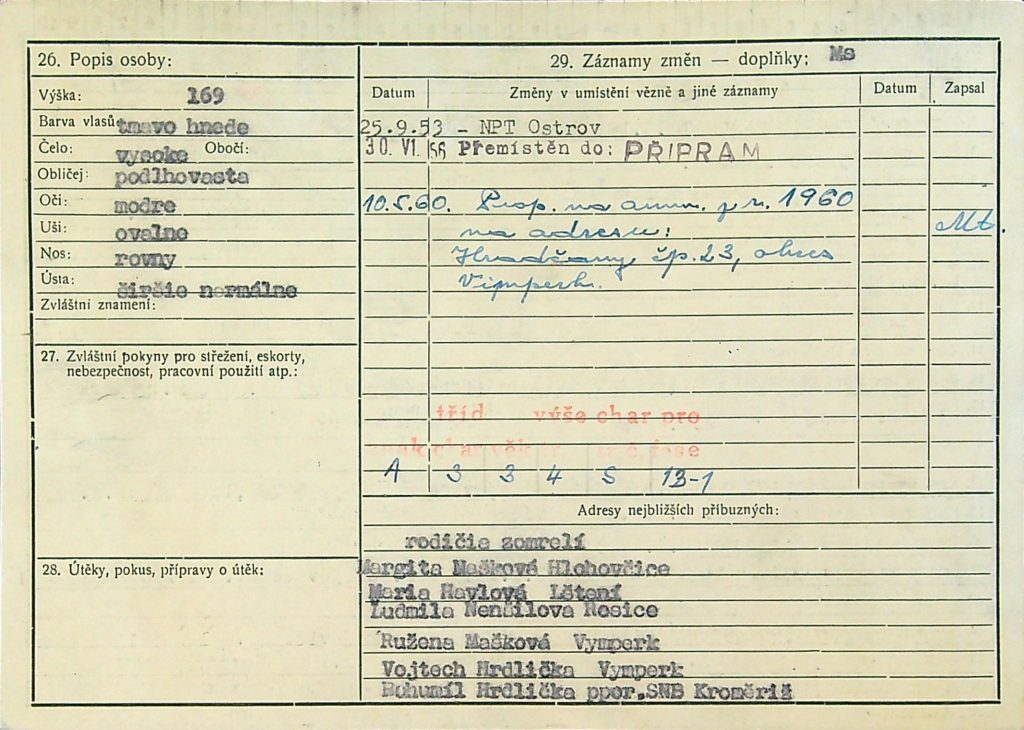 26. Popis osoby:
Výška: 169
Barva vlasů tmavo hnede
Čelo: vysoke Obočí:
Obličej: podlhovasta
Oči: modre
Uši: ovalne
Nos: rovny
Ústa: širšie normálne
Zvláštní znamení:
27. Zvláštní pokyny pro střežení, eskorty,
nebezpečnost, pracovní použití atp.:
28. Útěky, pokus, přípravy o útěk:
29. Záznamy změn — doplňky: Ms
Datum Změny v umístění vězně a jiné záznamy Datum Zapsal
25.9.53 - NPT Ostrov
30. VI. 56 Přemístěn do: PŘIPRAM
10.5.60. Prop. na amn. z r. 1960
na adresu: Mt.
Hradčany čp. 23, okres
Vimperk.
tříd výše char pro
char věk
A 3 3 4 5 13-1
Adresy nejbližších příbuzných:
rodičia zomrelí
Margita Mašková Hlohovčice
Maria Havlová Lštení
Ludmila Nenšilova Rosice
Ružena Mašková Vymperk
Vojtech Hrdlička Vymperk
Bohumíl Hrdlička ppor.SNB Kroměriž